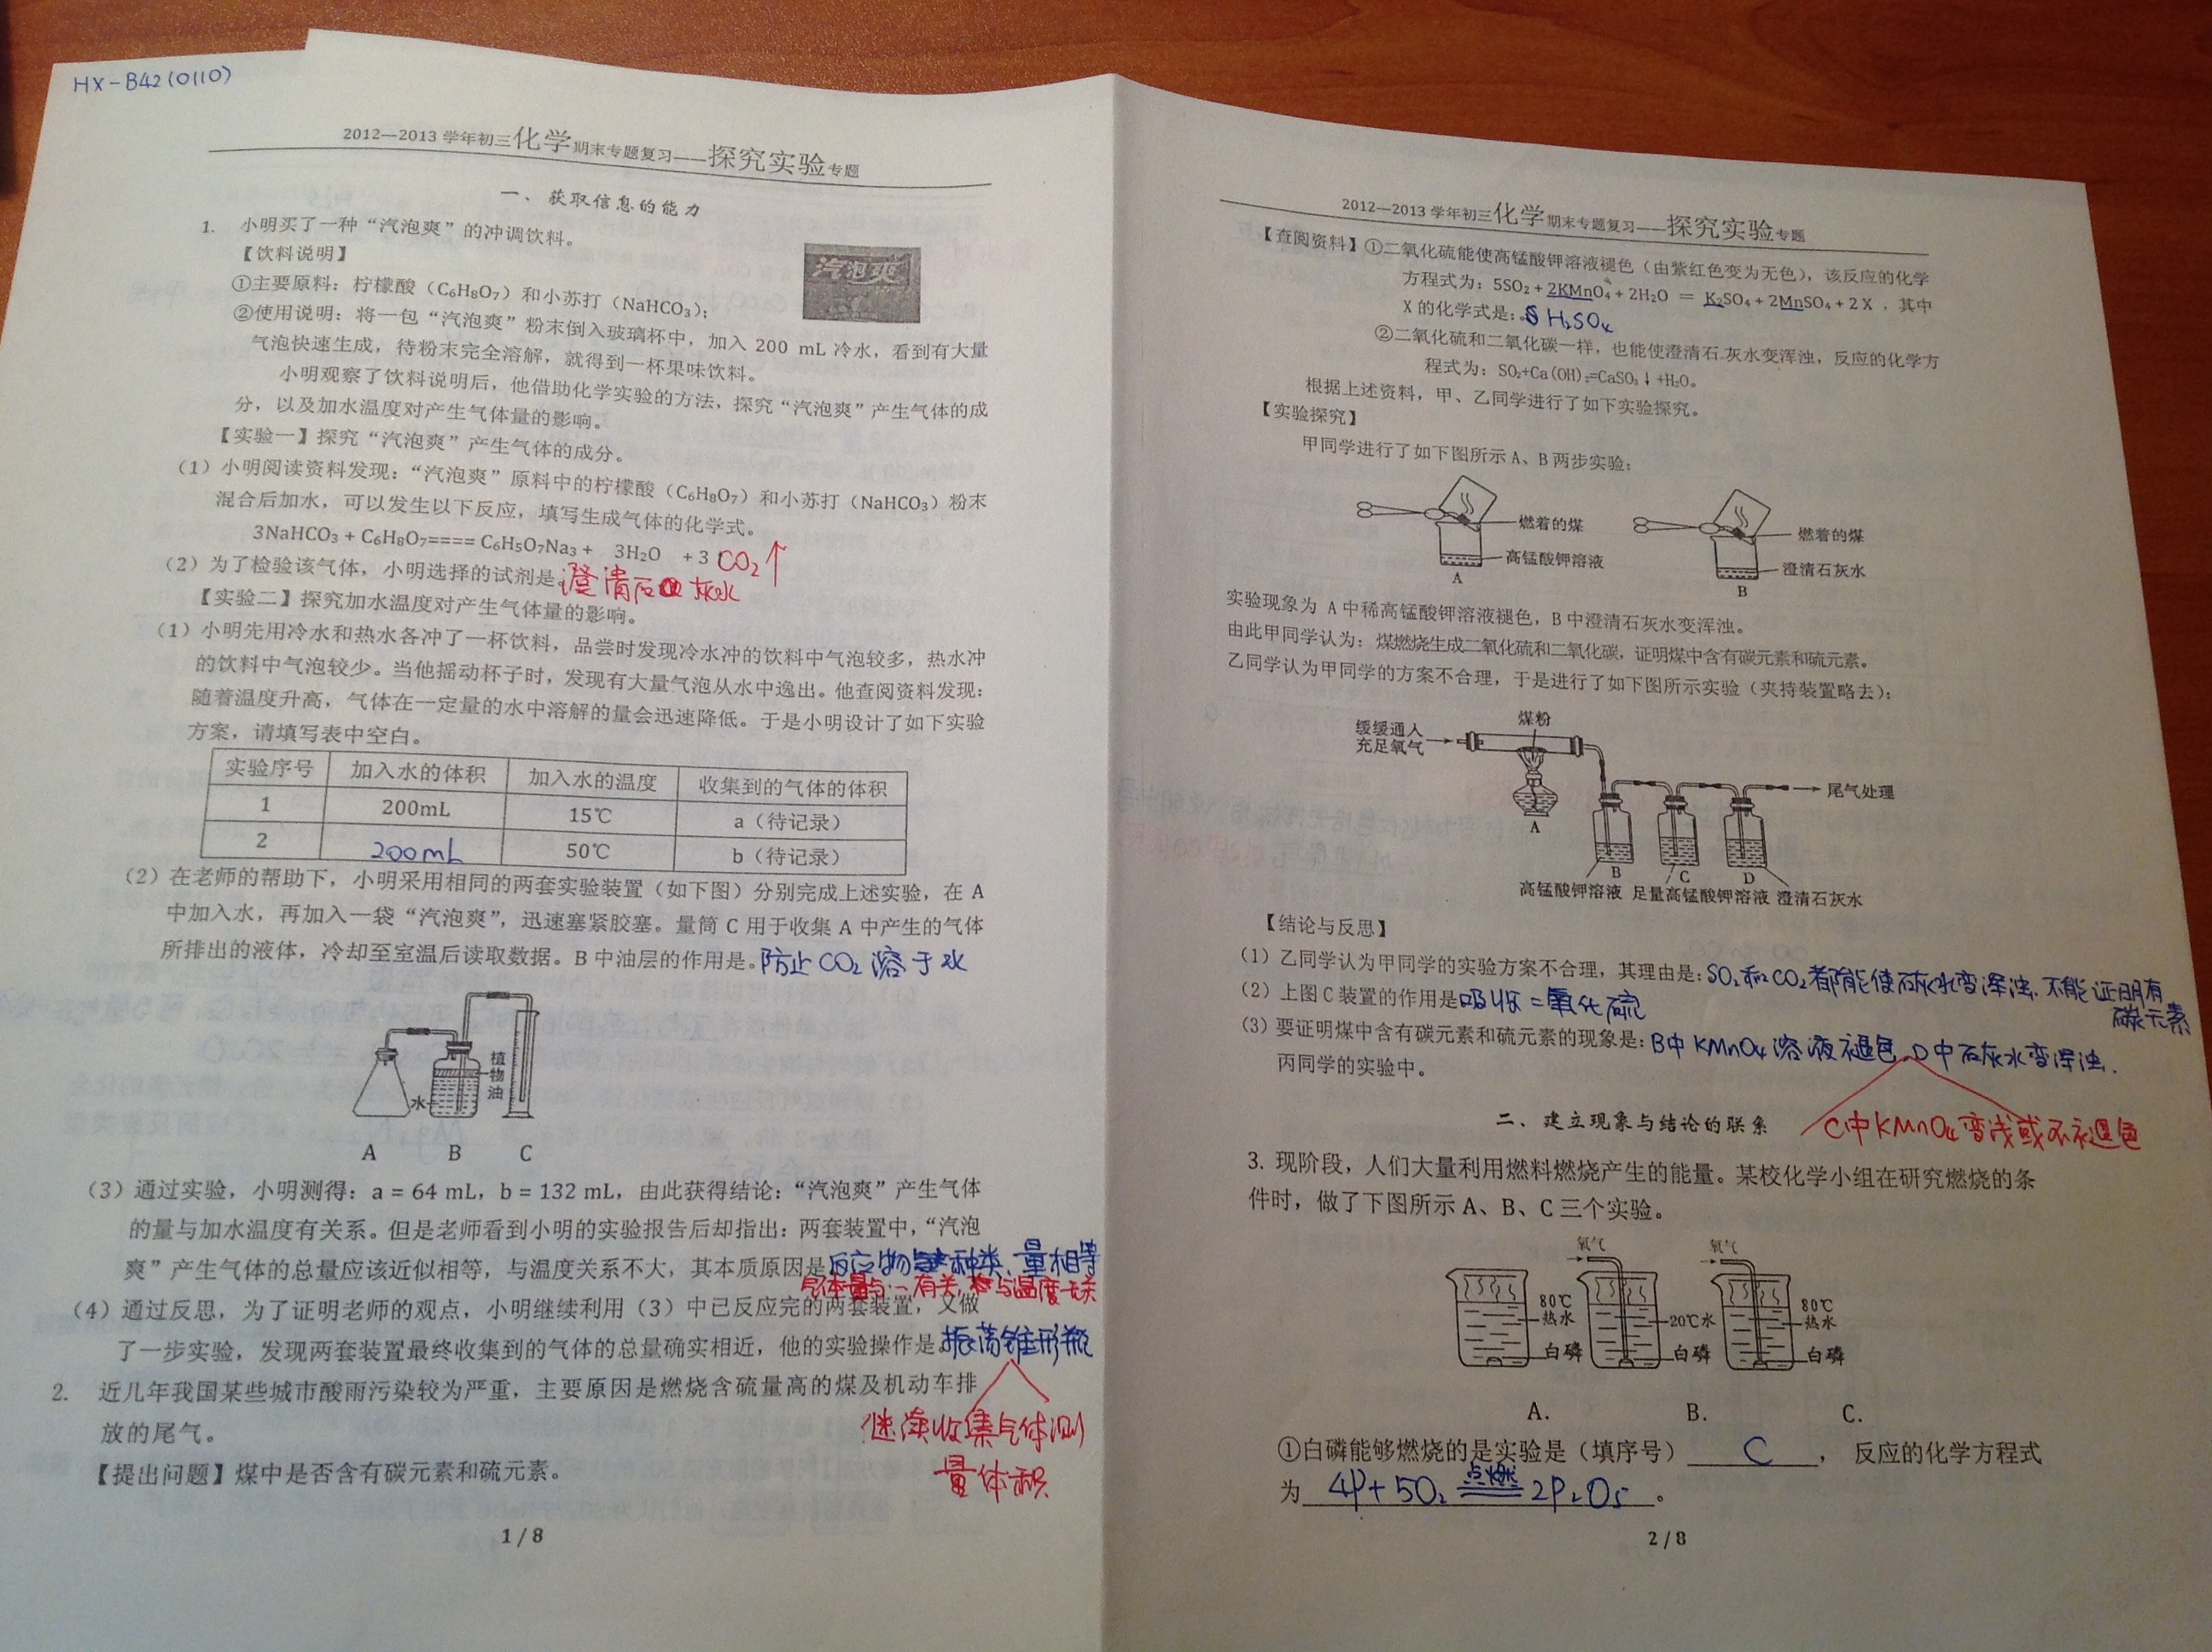 HX-B42(0110)
2012—2013 学年初三化学期末专题复习——探究实验专题
一、获取信息的能力
1. 小明买了一种“汽泡爽”的冲调饮料。
【饮料说明】
汽泡爽
①主要原料：柠檬酸（C₆H₈O₇）和小苏打（NaHCO₃）；
②使用说明：将一包“汽泡爽”粉末倒入玻璃杯中，加入 200 mL 冷水，看到有大量
气泡快速生成，待粉末完全溶解，就得到一杯果味饮料。
小明观察了饮料说明后，他借助化学实验的方法，探究“汽泡爽”产生气体的成
分，以及加水温度对产生气体量的影响。
【实验一】探究“汽泡爽”产生气体的成分。
（1）小明阅读资料发现：“汽泡爽”原料中的柠檬酸（C₆H₈O₇）和小苏打（NaHCO₃）粉末
混合后加水，可以发生以下反应，填写生成气体的化学式。
3NaHCO₃ + C₆H₈O₇==== C₆H₅O₇Na₃ + 3H₂O + 3 CO₂↑
（2）为了检验该气体，小明选择的试剂是 澄清石灰水
【实验二】探究加水温度对产生气体量的影响。
（1）小明先用冷水和热水各冲了一杯饮料，品尝时发现冷水冲的饮料中气泡较多，热水冲
的饮料中气泡较少。当他摇动杯子时，发现有大量气泡从水中逸出。他查阅资料发现：
随着温度升高，气体在一定量的水中溶解的量会迅速降低。于是小明设计了如下实验
方案，请填写表中空白。
实验序号 加入水的体积 加入水的温度 收集到的气体的体积
1 200mL 15℃ a（待记录）
2 200mL 50℃ b（待记录）
（2）在老师的帮助下，小明采用相同的两套实验装置（如下图）分别完成上述实验，在 A
中加入水，再加入一袋“汽泡爽”，迅速塞紧胶塞。量筒 C 用于收集 A 中产生的气体
所排出的液体，冷却至室温后读取数据。B 中油层的作用是。防止CO₂溶于水
植物油
水
A B C
（3）通过实验，小明测得：a = 64 mL，b = 132 mL，由此获得结论：“汽泡爽”产生气体
的量与加水温度有关系。但是老师看到小明的实验报告后却指出：两套装置中，“汽泡
爽”产生气体的总量应该近似相等，与温度关系不大，其本质原因是 反应物种类、量相等
气体量与…有关，与温度无关
（4）通过反思，为了证明老师的观点，小明继续利用（3）中已反应完的两套装置，又做
了一步实验，发现两套装置最终收集到的气体的总量确实相近，他的实验操作是。振荡锥形瓶
继续收集气体测
量体积
2. 近几年我国某些城市酸雨污染较为严重，主要原因是燃烧含硫量高的煤及机动车排
放的尾气。
【提出问题】煤中是否含有碳元素和硫元素。
1 / 8
2012—2013 学年初三化学期末专题复习——探究实验专题
【查阅资料】①二氧化硫能使高锰酸钾溶液褪色（由紫红色变为无色），该反应的化学
方程式为：5SO₂ + 2KMnO₄ + 2H₂O = K₂SO₄ + 2MnSO₄ + 2 X ，其中
X 的化学式是：H₂SO₄
②二氧化硫和二氧化碳一样，也能使澄清石灰水变浑浊，反应的化学方
程式为：SO₂+Ca(OH)₂=CaSO₃↓+H₂O。
根据上述资料，甲、乙同学进行了如下实验探究。
【实验探究】
甲同学进行了如下图所示 A、B 两步实验：
燃着的煤 燃着的煤
高锰酸钾溶液 澄清石灰水
A B
实验现象为 A 中稀高锰酸钾溶液褪色，B 中澄清石灰水变浑浊。
由此甲同学认为：煤燃烧生成二氧化硫和二氧化碳，证明煤中含有碳元素和硫元素。
乙同学认为甲同学的方案不合理，于是进行了如下图所示实验（夹持装置略去）：
煤粉
缓缓通入
充足氧气
尾气处理
A
B C D
高锰酸钾溶液 足量高锰酸钾溶液 澄清石灰水
【结论与反思】
（1）乙同学认为甲同学的实验方案不合理，其理由是：SO₂和CO₂都能使石灰水变浑浊，不能证明有
碳元素
（2）上图 C 装置的作用是 吸收二氧化硫
（3）要证明煤中含有碳元素和硫元素的现象是：B中KMnO₄溶液褪色 D中石灰水变浑浊.
丙同学的实验中。
C中KMnO₄变浅或不褪色
二、建立现象与结论的联系
3. 现阶段，人们大量利用燃料燃烧产生的能量。某校化学小组在研究燃烧的条
件时，做了下图所示 A、B、C 三个实验。
氧气 氧气
80℃热水 20℃水 80℃热水
白磷 白磷 白磷
A. B. C.
①白磷能够燃烧的是实验是（填序号） C ， 反应的化学方程式
为 4P + 5O₂ 点燃══ 2P₂O₅ 。
2 / 8